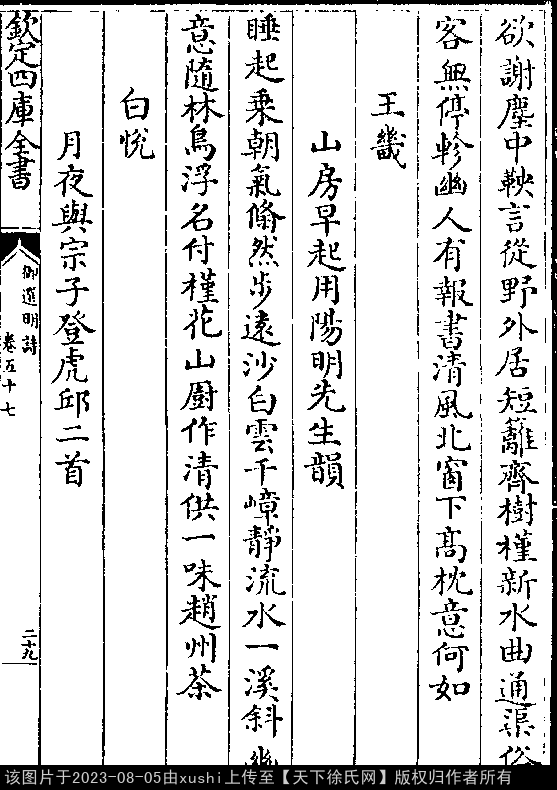 欲謝塵中鞅言從野外居短籬齊樹槿新水曲通渠俗
客無停軫幽人有報書清風北窗下髙枕意何如
王畿
山房早起用陽明先生韻
睡起乗朝氣翛然步遠沙白雲千嶂靜流水一溪斜幽
意隨林鳥浮名付槿花山厨作清供一味趙州茶
白悅
月夜與宗子登虎邱二首
欽定四庫全書
御選明詩
卷五十七
二十九
该图片于2023-08-05由xushi上传至【天下徐氏网】版权归作者所有